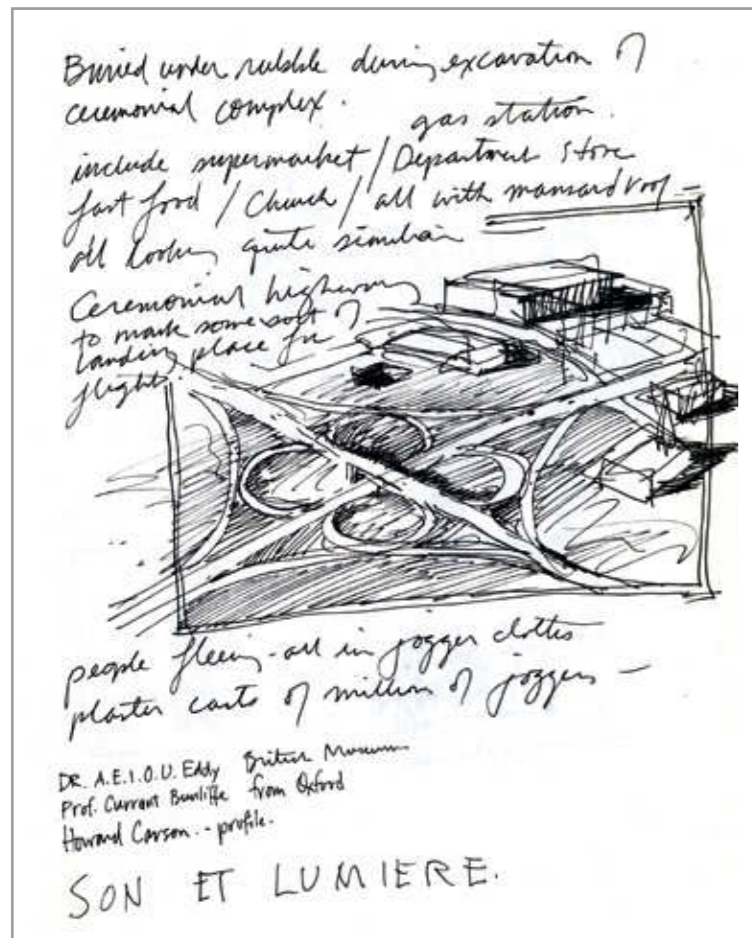 Buried under rubble during excavation of
ceremonial complex.
gas station.
include supermarket / Department Store
fast food / Church / all with mansard roof –
all looking quite similar
Ceremonial highway
to mark some sort of
landing place for
flight.
people fleeing - all in jogger clothes
plaster casts of millions of joggers –
DR. A.E.I.O.U. Eddy British Museum
Prof. Currant Bunliffe from Oxford
Howard Carson. - profile.
SON ET LUMIERE.